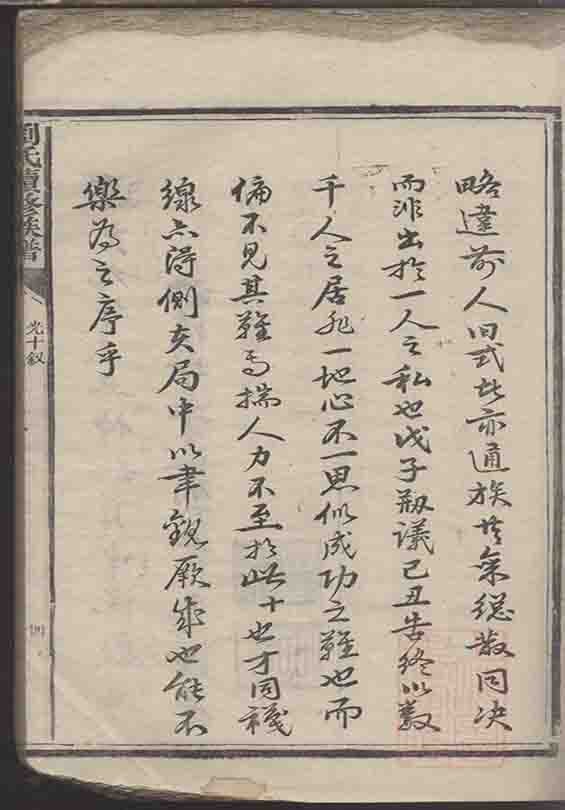 略違前人旧式此亦通族共案總散同决
而非出於一人之私也戊子剏議己丑告終以數
千人之居非一地心不一思似成功之難也而
偏不見其難焉揣人力不至於此十也才同襪
線亦得側奁局中以聿觀厥成也能不
樂為之序乎
劉氏續修族譜
光十叙